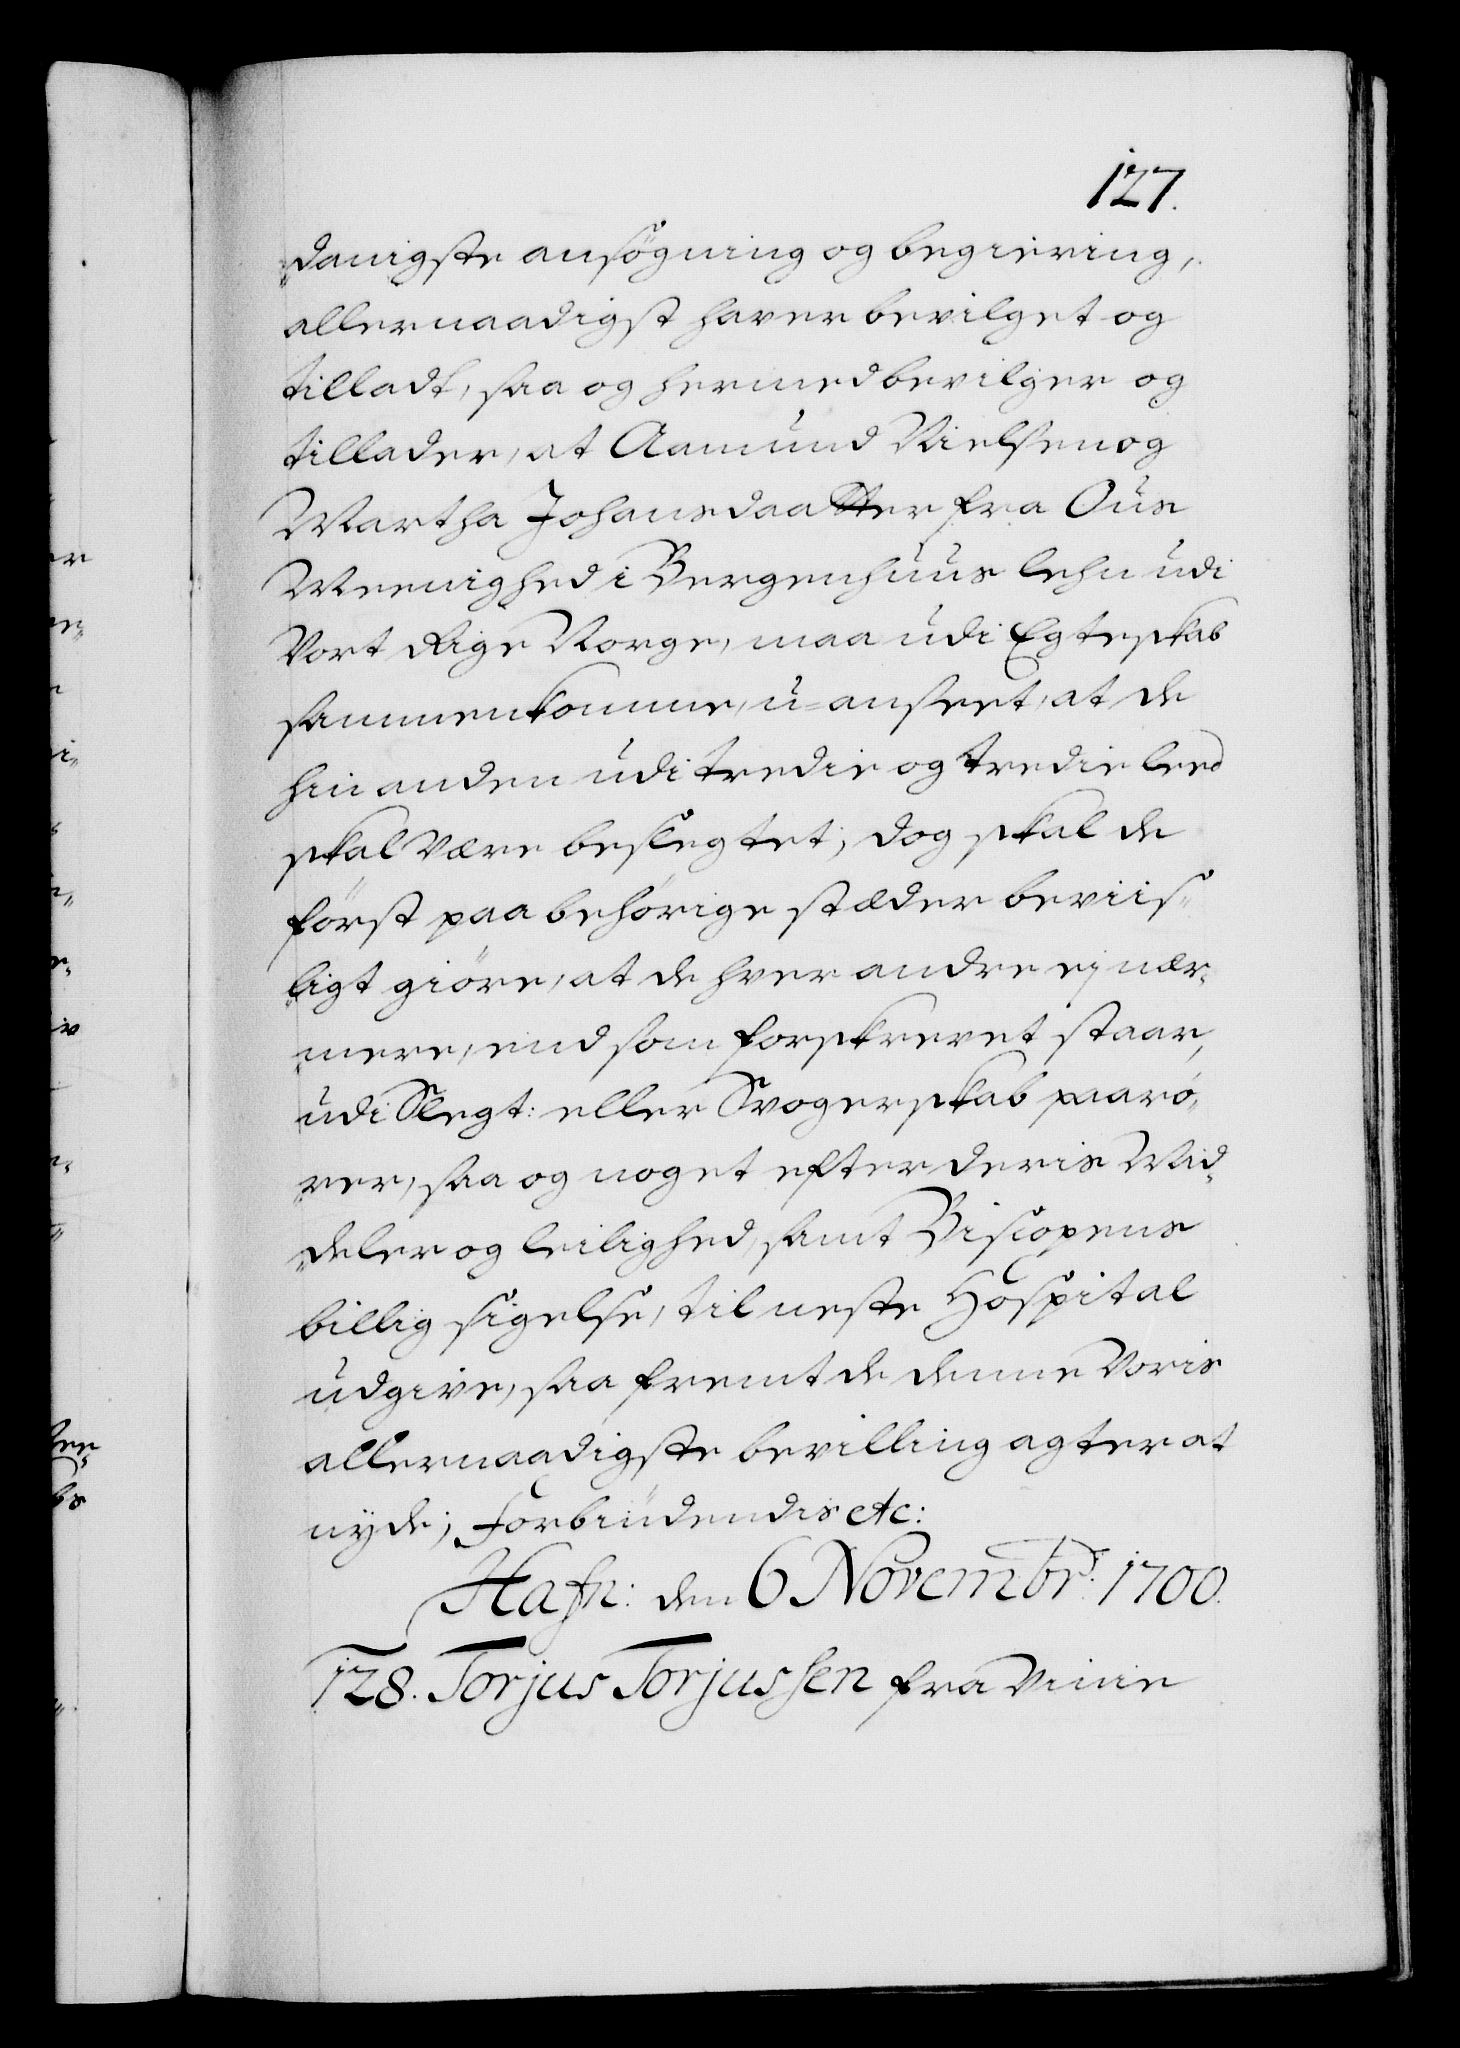 127.
danigste ansögning og begiering,
allernaadigst haver bevilget og
tilladt, saa og hermed bevilger og
tillader, at Aamund Nielsen og
Martha Johansdaatter fra Ous
Meenighed i Bergenhuus lehn udi
Vort Rige Norge, maa udi Egteskab
sammenkomme, u-anseet, at de
hin anden udi tredie og tredie leed
skal være beslegtet; dog skal de
först paa behörige stæder beviis-
ligt giöre, at de hver andre ej nær-
mere, end som forskrevet staar,
udi Slegt: eller Svogerskab paarö-
rer, saa og noget efter deris Mid-
deler og leilighed, samt Biscopens
billig sigelse, til neste Hospital
udgive, saa fremt de denne Voris
allernaadigste bevilling agter at
nyde; Forbiudendis etc:
Hafn: den 6 Novembr: 1700.
128. Torjus Torjussen fra Vinie
er
er-
i-
iv